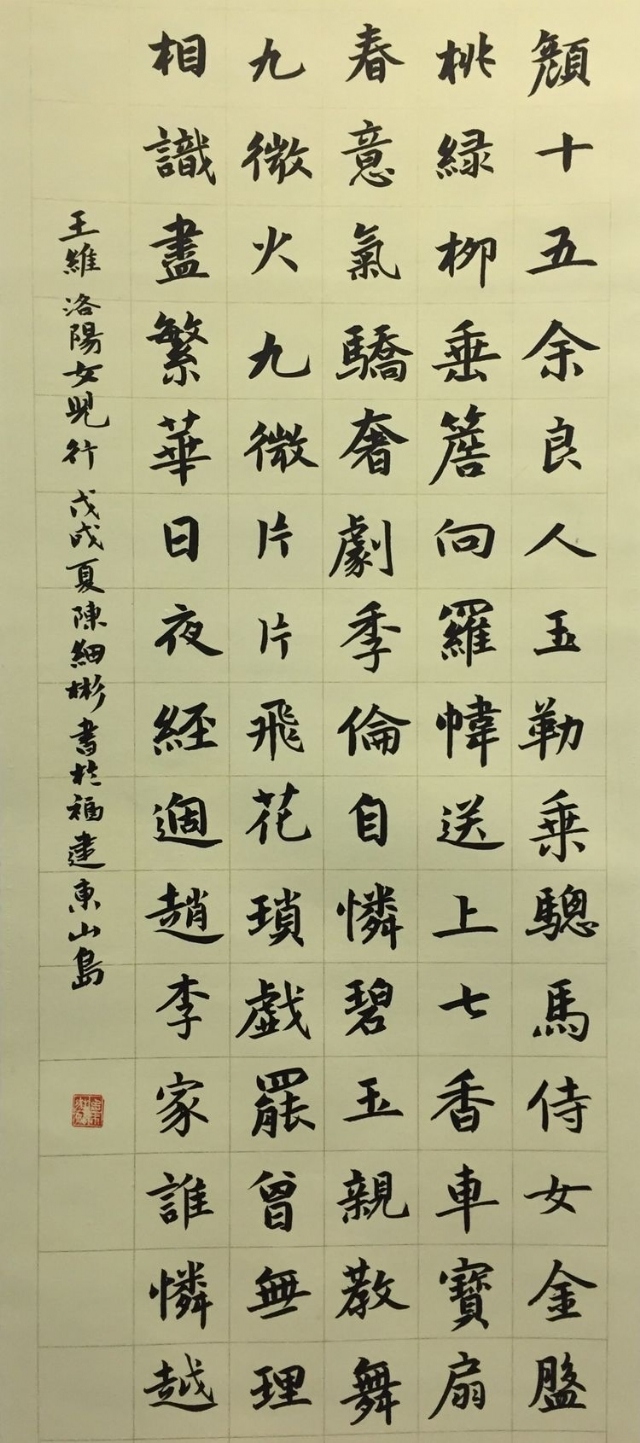 顏十五余良人玉勒乘驄馬侍女金盤
桃緑柳垂簷向羅幃送上七香車寶扇
春意氣驕奢劇季倫自憐碧玉親教舞
九微火九微片片飛花瑣戲罷曾無理
相識盡繁華日夜經過趙李家誰憐越
王維洛陽女兒行 戊戌夏陳細彬書於福建東山島